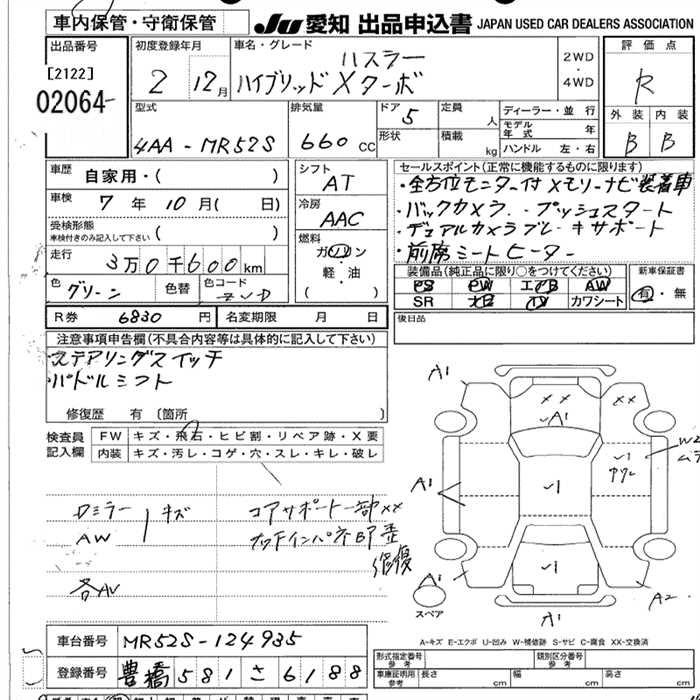 車内保管・守衛保管
JU 愛知 出品申込書 JAPAN USED CAR DEALERS ASSOCIATION
出品番号
[2122]
02064
初度登録年月
2 12月
車名・グレード
ハスラー
ハイブリッド X ターボ
2WD
・
4WD
評価点
R
外装 内装
B B
型式
4AA-MR52S
排気量
660 CC
ドア 5
形状
定員 人
積載 kg
ディーラー・並行
モデル年式 年
ハンドル 左・右
車歴 自家用・( )
車検 7年 10月( 日)
受検形態
車検付きのみ記入して下さい ( )
走行 3万0千600km
色 グリーン 色替 色コード
シフト
AT
冷房
AAC
燃料
ガソリン
軽・油
( )
セールスポイント(正常に機能するものに限ります)
・全方位モニター付メモリーナビ装着車
・バックカメラ ・プッシュスタート
・デュアルカメラブレーキサポート
・前席シートヒーター
装備品(純正品に限り○をつけてください)
PS PW エアB AW
SR カワシート
新車保証書
有・無
R券 6830円 名変期限 月 日
後日品
注意事項申告欄(不具合内容等は具体的に記入して下さい)
・ステアリングスイッチ
・パドルシフト
修復歴 有 (箇所 )
検査員
記入欄
FW キズ・飛石・ヒビ割・リペア跡・X要
内装 キズ・汚レ・コゲ・穴・スレ・キレ・破レ
ミラー キズ
AW
コアサポート一部XX
修復
A1
A1
A1
A1
A2
W2
ムラ
XX
XX
スペア
A-キズ E-エクボ U-凹み W-補修跡 S-サビ C-腐食 XX-交換済
車台番号 MR52S-124935
登録番号 豊橋 581 さ 6188
形式指定番号
参考
類別区分番号
参考
車庫証明用
参考
長さ cm 幅 cm 高さ cm